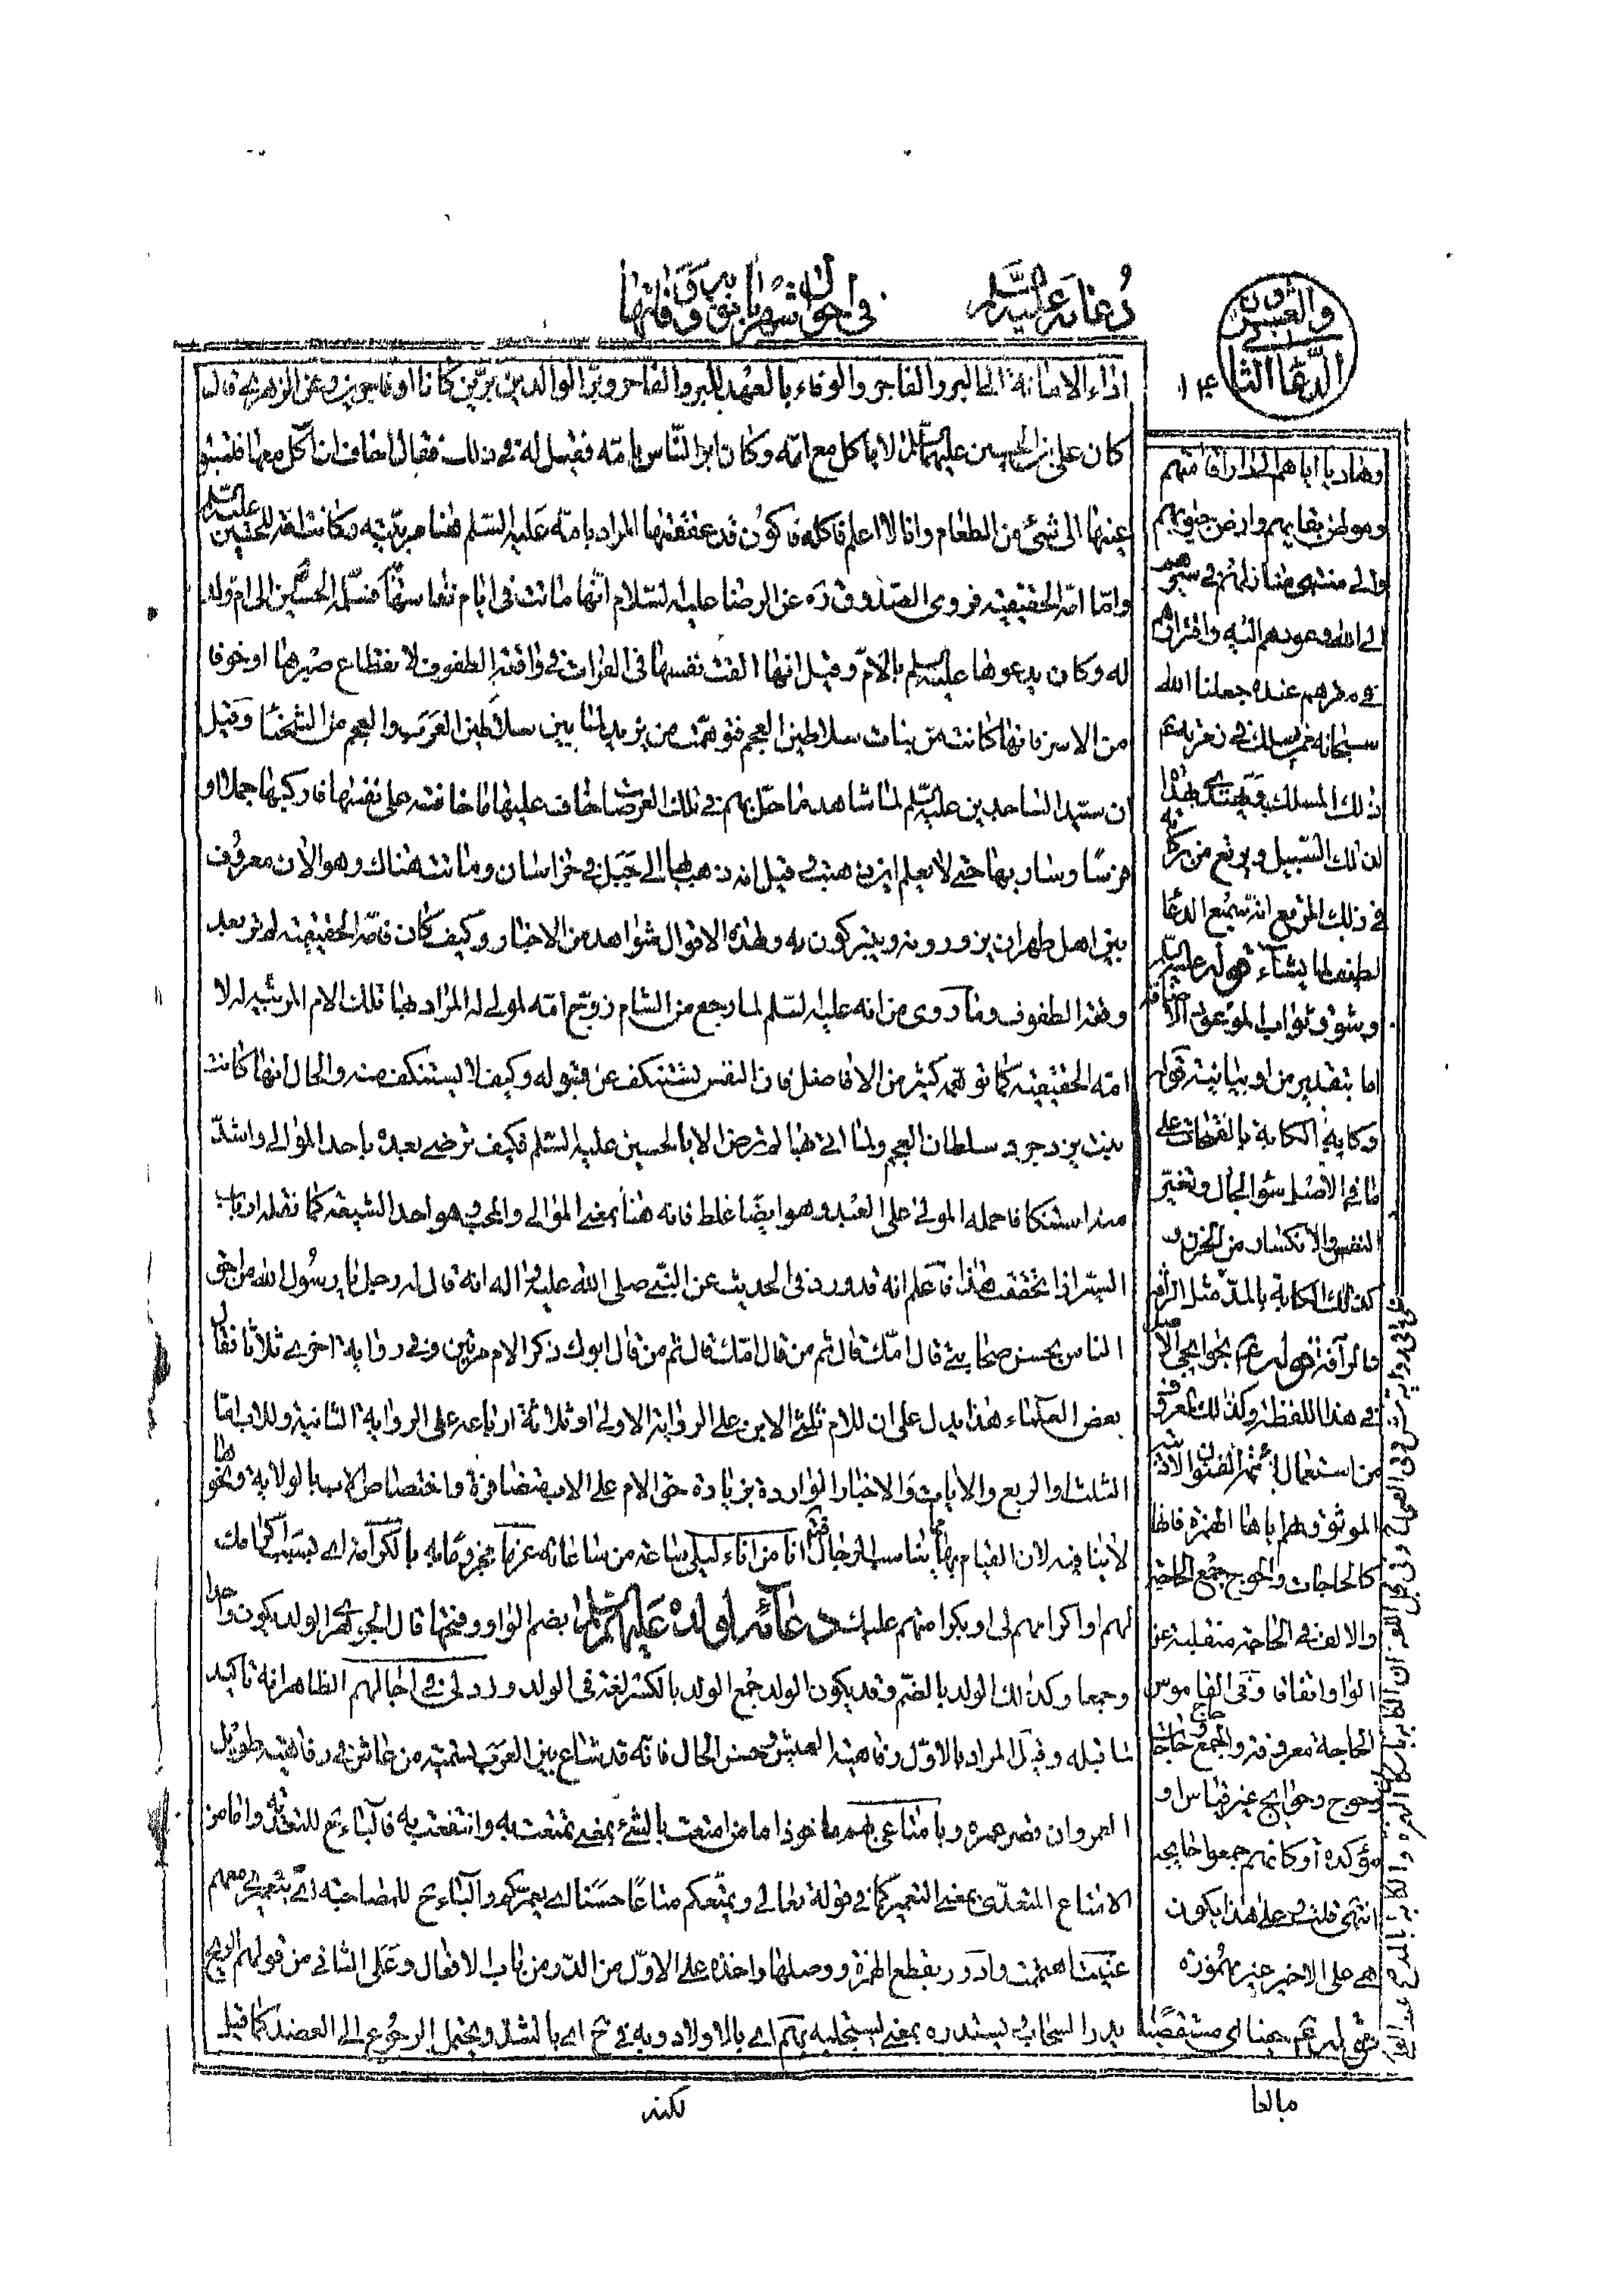 دعائه عليه السلم
في احوال شهربانويه ووفاتها
الدعاء الثالث والعشرون
١٤٠
اداء الامانة الى البر والفاجر والوفاء بالعهد للبر والفاجر وبر الوالدين برّين كانا او فاجرين وعن الزهري قال
كان علي بن الحسين عليهما السلم لا ياكل مع امّه وكان ابر الناس بامّه فقيل له في ذلك فقال اخاف ان آكل معها فتسبق
عينها الى شيء من الطعام وانا لا اعلم فآكله فاكون قد عققتها المراد بامّه عليه السلم هنا مربّيته وكانت امة للحسين عليه السلم
وامّا امّه الحقيقيّة فروى الصدوق ره عن الرضا عليه السلام انّها ماتت في ايام نفاسها فسلّمه الحسين الى ام ولد
له وكان يدعوها عليه السلم بالامّ وقيل انها القت نفسها في الفرات في واقعة الطفوف لانقطاع صبرها او خوفا
من الاسر فانها كانت من بنات سلاطين العجم فتوهمت من يزيد لما بين سلاطين العرب والعجم من الشحناء وقيل
ان سيد الساجدين عليه السلم لما شاهد ما حل بهم في تلك العرصات خاف عليها ما خافته على نفسها فاركبها جملا او
فرسًا وسار بها حتى لا يعلم اين ذهبت وقيل انه ذهب بها الى جبل في خراسان وماتت هناك وهو الان معروف
بين اهل طهران يزورونه ويتبركون به ولهذه الاقوال شواهد من الاخبار وكيف كان فامّه الحقيقية لم تر بعد
وقعة الطفوف وما روى من انه عليه السلم لما رجع من الشام زوج امّه لمولى له المراد بها تلك الام المربية له لا
امّه الحقيقية كما توهمه كثير من الافاضل فان النفس تستنكف عن قبوله وكيف لا يستنكف منه والحال انها كانت
بنت يزدجرد سلطان العجم ولما اتى بها لم ترض الا بالحسين عليه السلم فكيف ترضى بعده باحد الموالى واشدّ
منه استنكافا حمله المولى على العبد وهو ايضا غلط فانه هنا بمعنى الموالى والمحب وهو احد الشيعة كما نقله ارباب
السير اذا تحققت هذا فاعلم انه قد ورد في الحديث عن النبي صلى الله عليه واله انه قال له رجل يا رسول الله من احق
الناس بحسن صحابتي قال امّك قال ثم من قال امّك قال ثم من قال ابوك ذكر الام مرتين وفي رواية اخرى ثلاثا فقال
بعض العلماء هذا يدل على ان للام ثلثي الابن على الرواية الاولى او ثلاثة ارباعه على الرواية الثانية وللاب امّا
الثلث او الربع والايات والاخبار الواردة بزيادة حق الام على الاب متضافرة واختصاص الاب بالولاية ونحوها
لا ينافيه لان القيام بها يناسب الرجال قوله انا من اناء ليلي ساعة من ساعاته بالكرامة اى بسبب اكرامك
لهم او اكرامهم لى او بكرامتهم عليك دعائه لولده عليهم السلم بضم الواو وفتحها قال الجوهرى الولد يكون واحدا
وجمعا وكذلك الولد بالضم وقد يكون الولد جمع الولد بالكسر لغة في الولد وزد لى في اجالهم الظاهر انه تاكيد
لما قبله وقيل المراد بالاول رفاهية العيش وحسن الحال فانه قد شاع بين العرب تسمية من عاش في رفاهية طويل
العمر وان قصر عمره وبامتاعي بهم ماخوذ اما من امتعت بالشيء بمعنى تمتعت به وانتفعت به فالباء ح للتعدية واما من
الامتاع المتعدّى بمعنى التعمير كما في قوله تعالى ويمتعكم متاعًا حسنًا اى يعمركم والباء ح للمصاحبة اى بتعميرى معهم
عنيت اهتممت وادرر بقطع الهمزة ووصلها واخذه على الاول من الدر ومن باب الافعال وعلى الثانى من قولهم الريح
يدر السحاب يستدره بمعنى يستحلبه بهم اى بالاولاد وبه في اى بالشد ويحتمل الرجوع الى العضد كما قيل
لكنه
وصار بابا هم الى دار اقامتهم
وموطن بقايهم وارض حيوتهم
والى منتهى منازلهم في سيرهم
الى الله وعودهم اليه واقترابهم
في مقرهم عنده جعلنا الله
سبحانه ممن يسلك في
ذلك المسلك ويهتدى بهذا
لذلك السبيل ويرتع من
في ذلك المرتع انه سميع الدعا
لطيف لما يشاء قوله عليه السلم
وشوق ثواب الموعود الاضافة
اما بتقدير من او بيانية قوله
وكابة الكابة بالفتحات على
ما في الاصل سوء الحال وتغير
النفس والانكسار من الحزن و
كذلك الكابة بالمد مثل الرأفة
والرآفة قوله ع بحوايجي الاصل
في هذا اللفظة وكذلك المعروف
من استعمال ائمة الفنون
الموثوق بهم اياها الهمزة فانها
كالحاجات والحوج جمع الحاجة
والالف في الحاجة منقلبة عن
الواو اتفاقا وفي القاموس
الحاجة معروفة والجمع حاج حاجات
وحوج وحوايج غير قياسى او
مؤكدة او كانهم جمعوا حايجة
انتهى قلت وعلى هذا يكون
هي على الاخير غير مهموزة
قوله ع
مبالغا